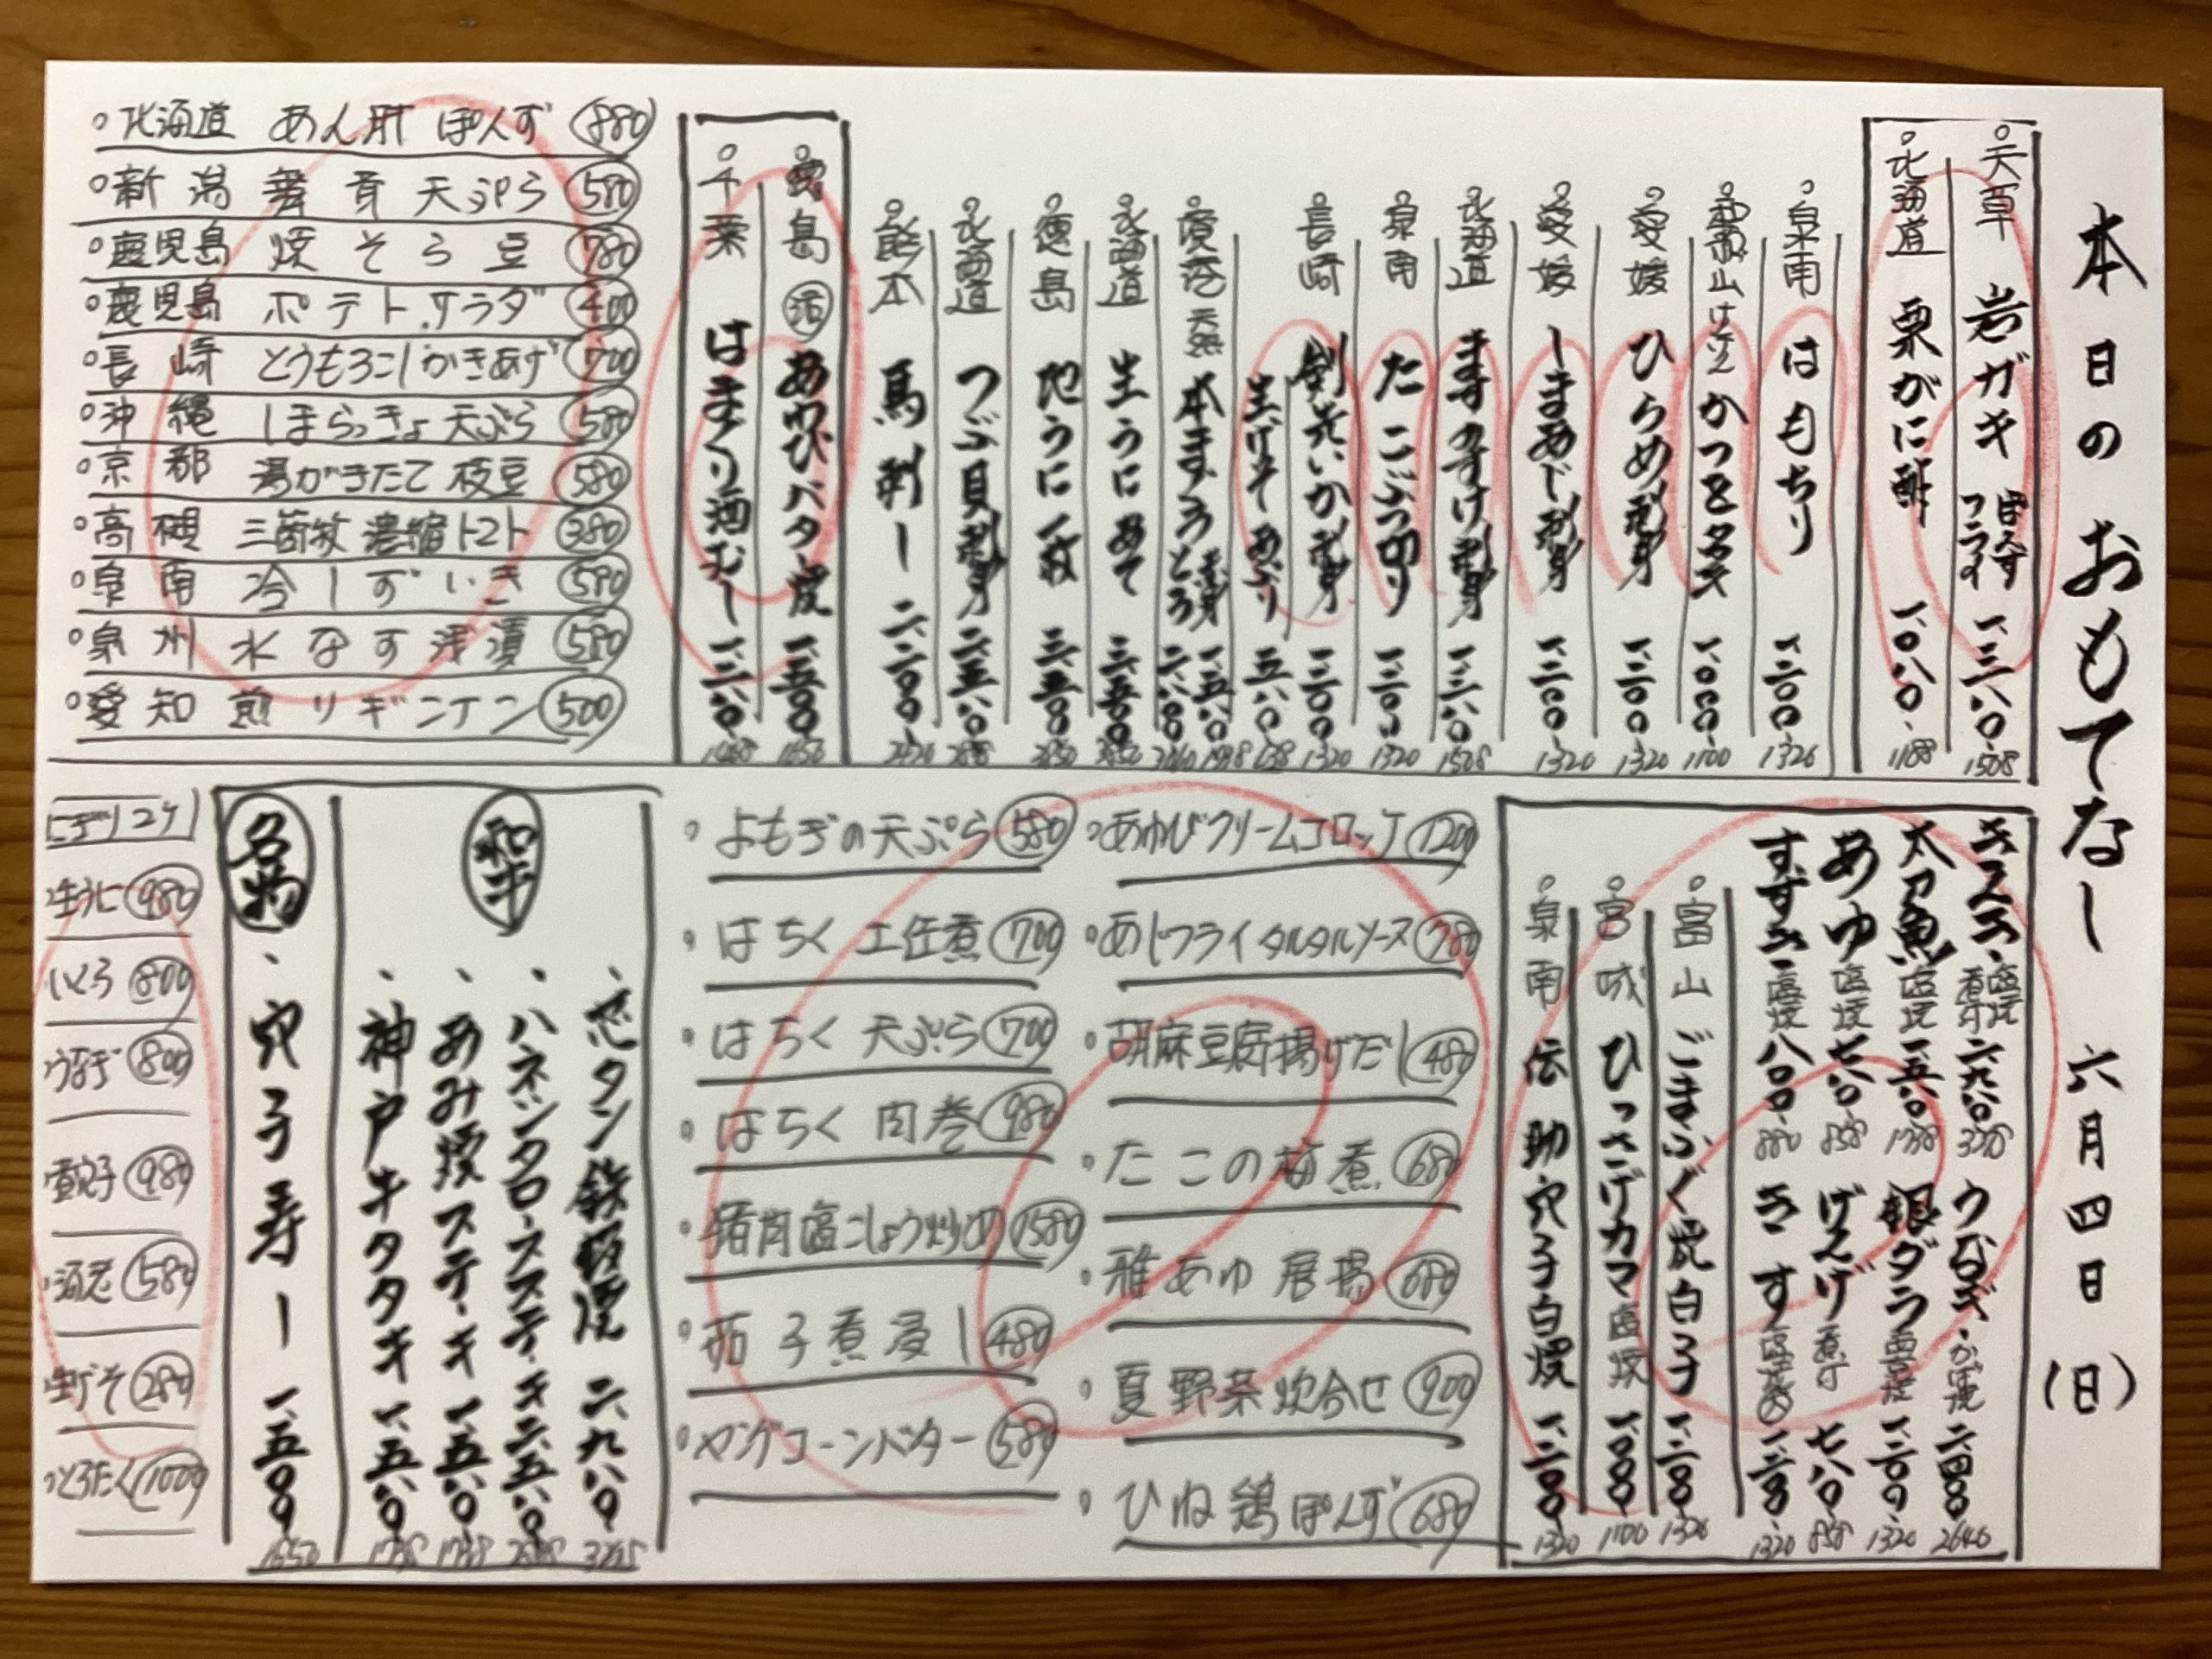 本日のおもてなし 六月四日(日)
天草 岩ガキ ぽんず フライ 一、三八〇 1508
北海道 栗がに酢 一、〇八〇 1188
泉南 はもちり 一、二〇〇 1320
和歌山 けんけん かつをタタキ 一、〇〇〇 1100
愛媛 ひらめ刺身 一、二〇〇 1320
愛媛 しまあじ刺身 一、二〇〇 1320
北海道 ますのすけ刺身 一、三八〇 1508
泉南 たこぶつ切り 一、二〇〇 1320
長崎 剣先いか刺身 一、二〇〇 1320
生げそあぶり 五八〇 638
天然 本まぐろ 赤身 一、五八〇 とろ 二、八〇〇
北海道 生うにあて 三、五〇〇 3850
徳島 地うに一枚 三、五〇〇 3850
北海道 つぶ貝刺身 二、五八〇
熊本 馬刺し 二、二〇〇 2420
徳島 活 あわびバター焼 一、五〇〇 1650
千葉 はまぐり酒むし 一、三八〇
北海道 あん肝ぽんず 880
新潟 舞茸天ぷら 580
鹿児島 焼そら豆 780
鹿児島 ポテトサラダ 400
長崎 とうもろこしかきあげ 700
沖縄 しまらっきょ天ぷら 580
京都 湯がきたて枝豆 580
高槻 三箇牧濃縮トマト 380
泉南 冷しずいき 580
泉州 水なす浅漬 580
愛知 煎りギンナン 500
太刀魚 塩焼 一、五八〇 1738
あゆ 塩焼 七八〇 858
すずき 塩焼 八〇〇 880
うなぎ・かば焼 二、四〇〇 2640
銀ダラ 西京焼 一、二〇〇 1320
げんげ 煮付 七八〇 858
きす 一、二〇〇 1320
富山 ごまふぐ炭白子 一、二〇〇 1320
宮城 ひっさげカマ塩焼 一、〇〇〇 1100
泉南 伝助穴子白焼 一、二〇〇 1320
あわびクリームコロッケ 1200
あじフライタルタルソース 780
胡麻豆腐揚げだし 480
たこの梅煮 680
稚あゆ唐揚 680
夏野菜炊合せ 900
ひね鶏ぽんず 680
よもぎの天ぷら 580
はちく土佐煮 700
はちく天ぷら 700
はちく肉巻 980
猪肉塩こしょう炒め 1580
茄子煮浸し 480
ヤングコーンバター 580
和牛
芯タン鉄板焼 二、九八〇
ハネシタロースステーキ 二、五八〇
あみ焼ステーキ 一、五八〇 1738
神戸牛タタキ 一、五八〇 1738
名物
穴子寿し 一、五〇〇 1650
にぎり2ケ
生うに 980
いくら 800
うなぎ 800
980
580
生げそ 280
とろたく 1000